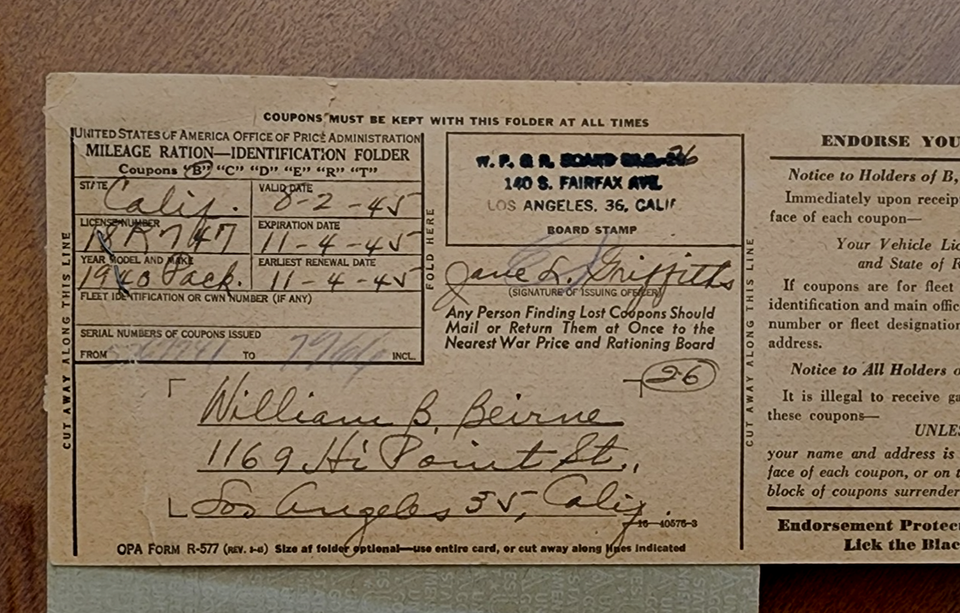 COUPONS MUST BE KEPT WITH THIS FOLDER AT ALL TIMES
UNITED STATES OF AMERICA OFFICE OF PRICE ADMINISTRATION
MILEAGE RATION—IDENTIFICATION FOLDER
Coupons "B" "C" "D" "E" "R" "T"
STATE
Calif.
VALID DATE
8-2-45
LICENSE NUMBER
EXPIRATION DATE
11-4-45
YEAR MODEL AND MAKE
1940 Pack.
EARLIEST RENEWAL DATE
11-4-45
FLEET IDENTIFICATION OR OWN NUMBER (IF ANY)
SERIAL NUMBERS OF COUPONS ISSUED
FROM TO INCL.
FOLD HERE
CUT AWAY ALONG THIS LINE
W. P. & R. BOARD
140 S. FAIRFAX AVE.
LOS ANGELES, 36, CALIF
BOARD STAMP
Jane L. Griffiths
(SIGNATURE OF ISSUING OFFICER)
Any Person Finding Lost Coupons Should
Mail or Return Them at Once to the
Nearest War Price and Rationing Board
26
William B. Beirne
1169 Hi Point St.,
Los Angeles 35, Calif.
16—40576-3
OPA FORM R-577 (REV. ) Size of folder optional—use entire card, or cut away along lines indicated
CUT AWAY ALONG THIS LINE
ENDORSE YOU
Notice to Holders of B,
Immediately upon receip
face of each coupon—
Your Vehicle Lic
and State of R
If coupons are for fleet
identification and main offic
number or fleet designation
address.
Notice to All Holders o
It is illegal to receive ga
these coupons—
UNLES
your name and address is
face of each coupon, or on t
block of coupons surrender
Endorsement Protec
Lick the Blac